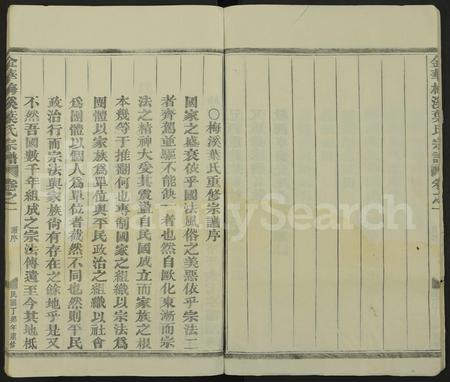 金華梅溪葉氏宗譜
卷之一
○梅溪葉氏重修宗譜序
國家之盛衰依乎國法風俗之美惡依乎宗法二
者齊駕並驅不能缺一者也然自歐化東漸而宗
法之精神大受其震盪自民國成立而家族之根
本幾等于推翻何也專制國家之組織以宗法爲
團體以家族爲單位與平民政治之組織以社會
爲團體以個人爲單位者截然不同也然則平民
政治行而宗法與家族尙有存在之餘地乎是又
不然吾國數千年組成之宗法傳遺至今其地柢
金華梅溪葉氏宗譜
卷之一
譜序
民國丁卯年重修
MySearch